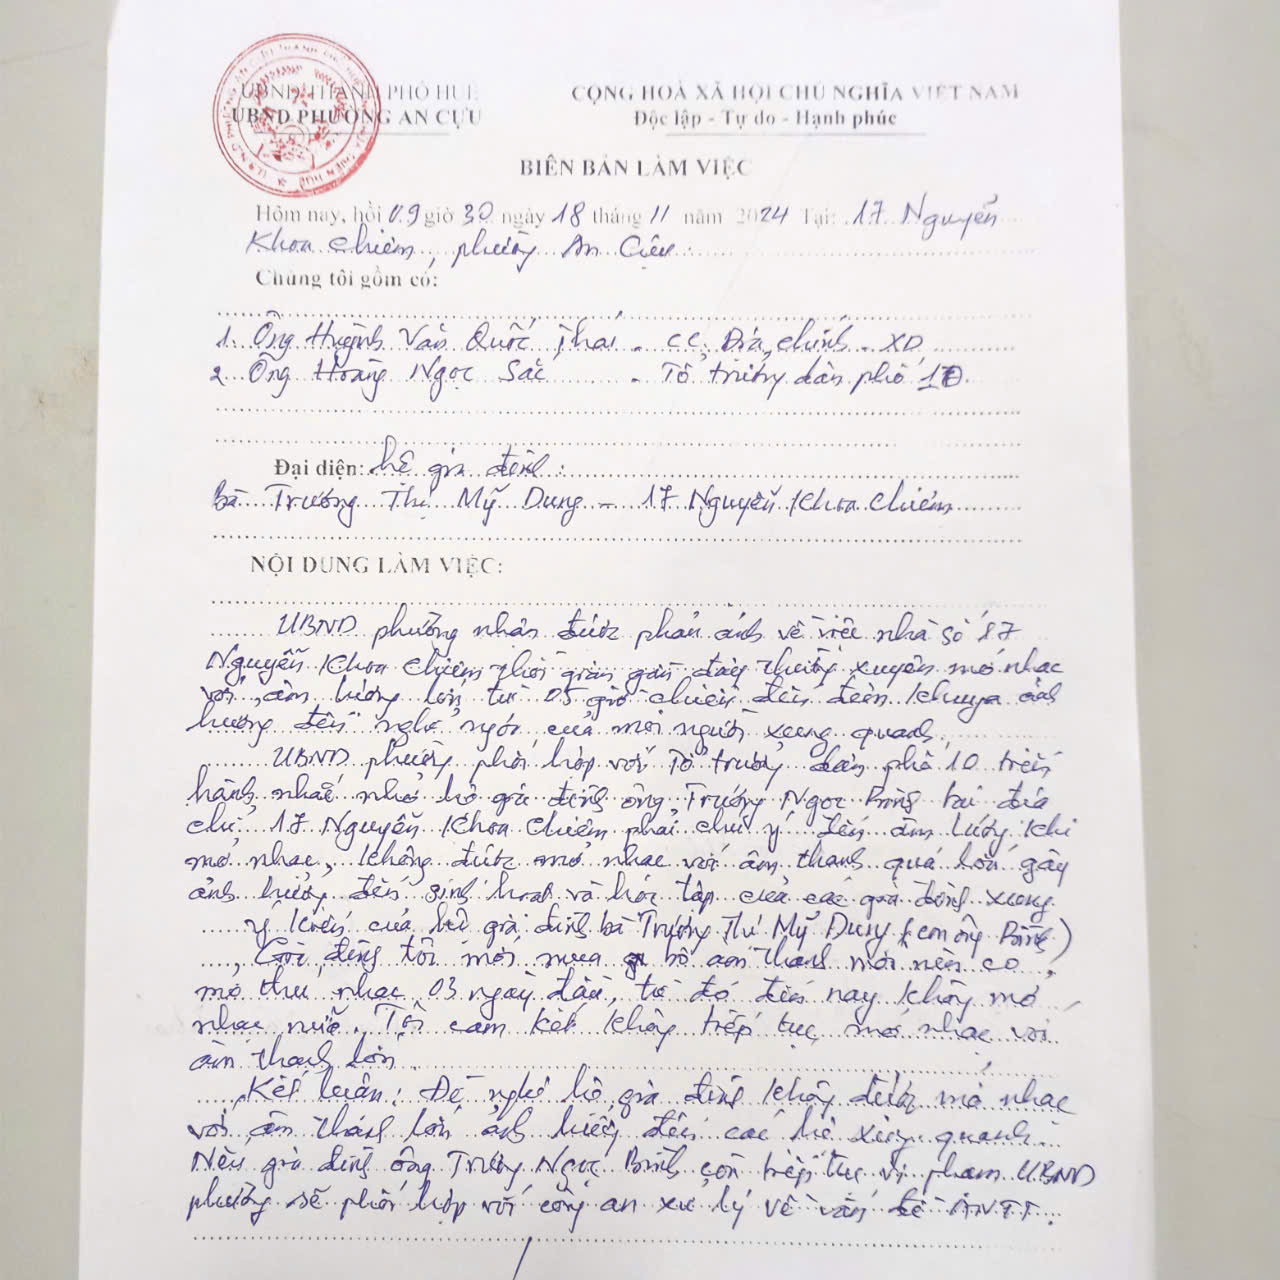 UBND THÀNH PHỐ HUẾ
UBND PHƯỜNG AN CỰU
CỘNG HOÀ XÃ HỘI CHỦ NGHĨA VIỆT NAM
Độc lập - Tự do - Hạnh phúc
BIÊN BẢN LÀM VIỆC
Hôm nay, hồi 09 giờ 30 ngày 18 tháng 11 năm 2024 Tại: 17 Nguyễn
Khoa Chiêm, phường An Cựu.
Chúng tôi gồm có:
1. Ông Huỳnh Văn Quốc Thái - CC, Địa chính - XD
2. Ông Hoàng Ngọc Sắc - Tổ trưởng dân phố 10.
Đại diện: hộ gia đình:
Bà Trương Thị Mỹ Dung - 17 Nguyễn Khoa Chiêm
NỘI DUNG LÀM VIỆC:
UBND phường nhận được phản ánh về việc nhà số 17
Nguyễn Khoa Chiêm thời gian gần đây thường xuyên mở nhạc
với âm lượng lớn từ 05 giờ chiều đến đêm khuya ảnh
hưởng đến nghỉ ngơi của mọi người xung quanh.
UBND phường phối hợp với Tổ trưởng dân phố 10 tiến
hành nhắc nhở hộ gia đình ông Trương Ngọc Bình tại địa
chỉ 17 Nguyễn Khoa Chiêm phải chú ý đến âm lượng khi
mở nhạc, không được mở nhạc với âm thanh quá lớn gây
ảnh hưởng đến sinh hoạt và học tập của các gia đình xung
Ý kiến của hộ gia đình bà Trương Thị Mỹ Dung (con ông Bình)
Gia đình tôi mới mua bộ âm thanh mới nên có
mở thử nhạc 03 ngày đầu, từ đó đến nay không mở
nhạc nữa. Tôi cam kết không tiếp tục mở nhạc với
âm thanh lớn.
Kết luận: Đề nghị hộ gia đình không được mở nhạc
với âm thanh lớn ảnh hưởng đến các hộ xung quanh.
Nếu gia đình ông Trương Ngọc Bình còn tiếp tục vi phạm UBND
phường sẽ phối hợp với công an xử lý về vấn đề ANTT.